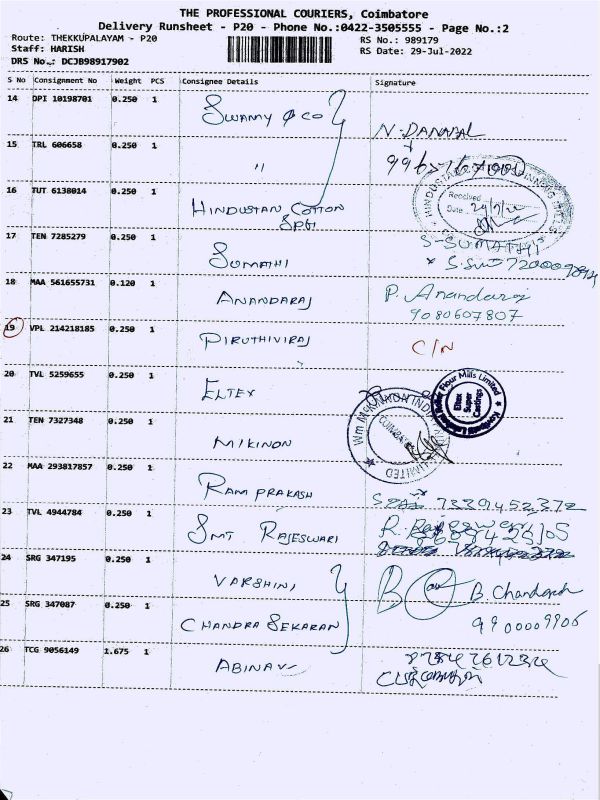 THE PROFESSIONAL COURIERS, Coimbatore
Delivery Runsheet - P20 - Phone No.:0422-3505555 - Page No.:2
Route: THEKKUPALAYAM - P20
RS No.: 989179
Staff: HARISH
RS Date: 29-Jul-2022
DRS No.: DCJB98917902
S No Consignment No Weight PCS Consignee Details Signature
14 DPI 10198701 0.250 1 SWAMY & CO
N. DANAPAL
15 TRL 606658 0.250 1 "
16 TUT 6138014 0.250 1 HINDUSTAN COTTON
SPG
Received
Date
17 TEN 7285279 0.250 1 SUMATHI S-SUMATHI
18 MAA 561655731 0.120 1 ANANDARAJ P. Anandaraj
9080607807
19 VPL 214218185 0.250 1 PIRUTHIVIRAJ C/N
20 TVL 5259655 0.250 1 ELTEX
Flour Mills Limited
Eltex
Super
Castings
21 TEN 7327348 0.250 1 MIKINON
LIMITED
22 MAA 293817857 0.250 1 RAM PRAKASH 7339452372
23 TVL 4944784 0.250 1 SMT RAJESWARI
24 SRG 347195 0.250 1 VARSHINI
B. Chandrasek
25 SRG 347087 0.250 1 CHANDRA SEKARAN
9900009906
26 TCG 9056149 1.675 1 ABINAV